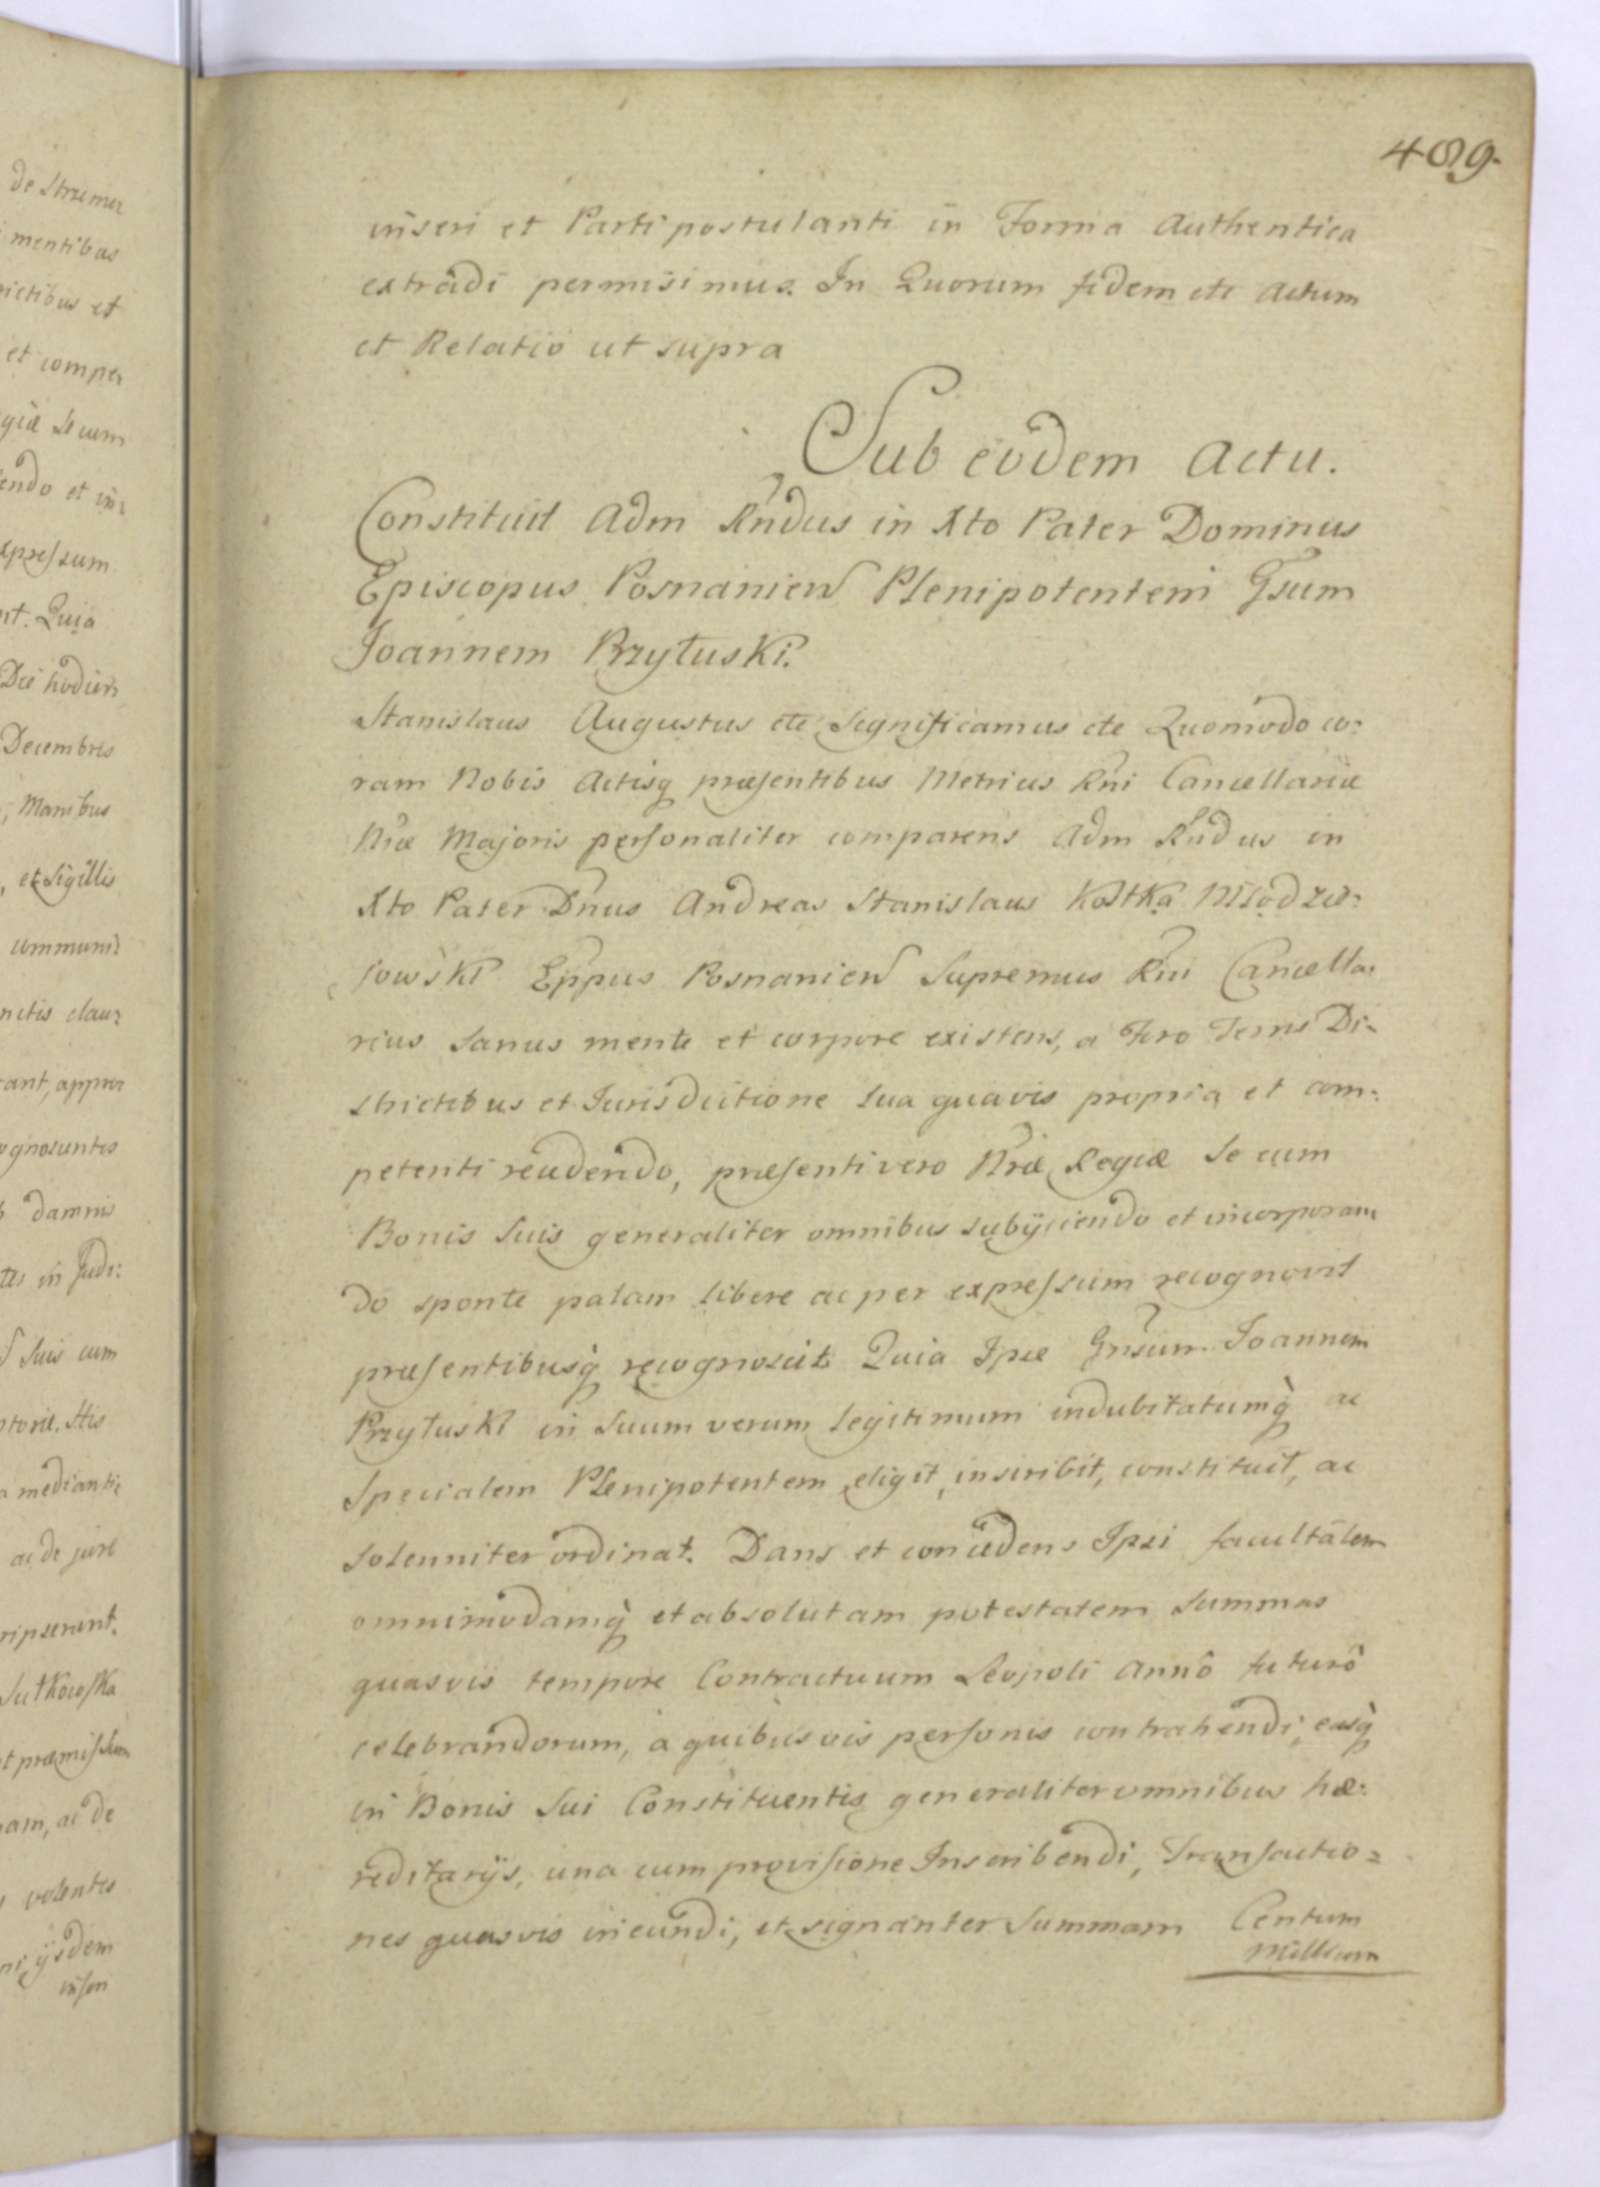 de Strumer
mentibus
rictibus et
et compe
giæ Se cum
endo et in
xpressum
nt. Quia
Die hodier
Decembris
, Manibus
, et Sigillis
communi
nctis clau
rant, appro
ognoscuntes
damnis
tes in Judi:
Suis cum
ptoriæ. Stis
a mediante
ac de jure
ripserunt.
Sutkowska
et præmissum
nam, ac de
volentes
ijsdem
inseri
489.
inseri et Parti postulanti in Forma Authentica
extradi permisimus. In Quorum fidem etc Actum
et Relatio ut supra
Sub eodem Actu.
Constituit Adm Rndus in Xto Pater Dominus
Episcopus Posnanien Plenipotentem Gsum
Joannem Przyłuski.
Stanislaus Augustus etc Significamus etc Quomodo co:
ram Nobis Actisq præsentibus Metrices Rni Cancellariæ
Nræ Majoris personaliter comparens Adm Rndus in
Xto Pater Dnus Andreas Stanislaus Kostka Młodzie:
jowski Eppus Posnanien Supremus Rni Cancella:
rius sanus mente et corpore existens, a Foro Terris Di:
strictibus et Jurisdictione sua quavis propria et com:
petenti recedendo, præsenti vero Nræ Regiæ Se cum
Bonis Suis generaliter omnibus subijciendo et incorporan
do sponte palam libere ac per expressum recognovit
præsentibusq recognoscit. Quia Ipse Gnsum Joannem
Przyłuski in Suum verum legitimum indubitatumq ac
Specialem Plenipotentem eligit, inscribit, constituit, ac
solenniter ordinat. Dans et concedens Ipsi facultatem
omnimodamq et absolutam potestatem Summas
quasvis tempore Contractuum Leopoli Annô futurô
celebrandorum, à quibusvis personis contrahendi, easq
in Bonis Sui Constituentis generaliter omnibus hæ:
reditarijs, una cum provisione Inscribendi, Transactio=
nes quasvis ineundi, et signanter Summam Centum
Millium